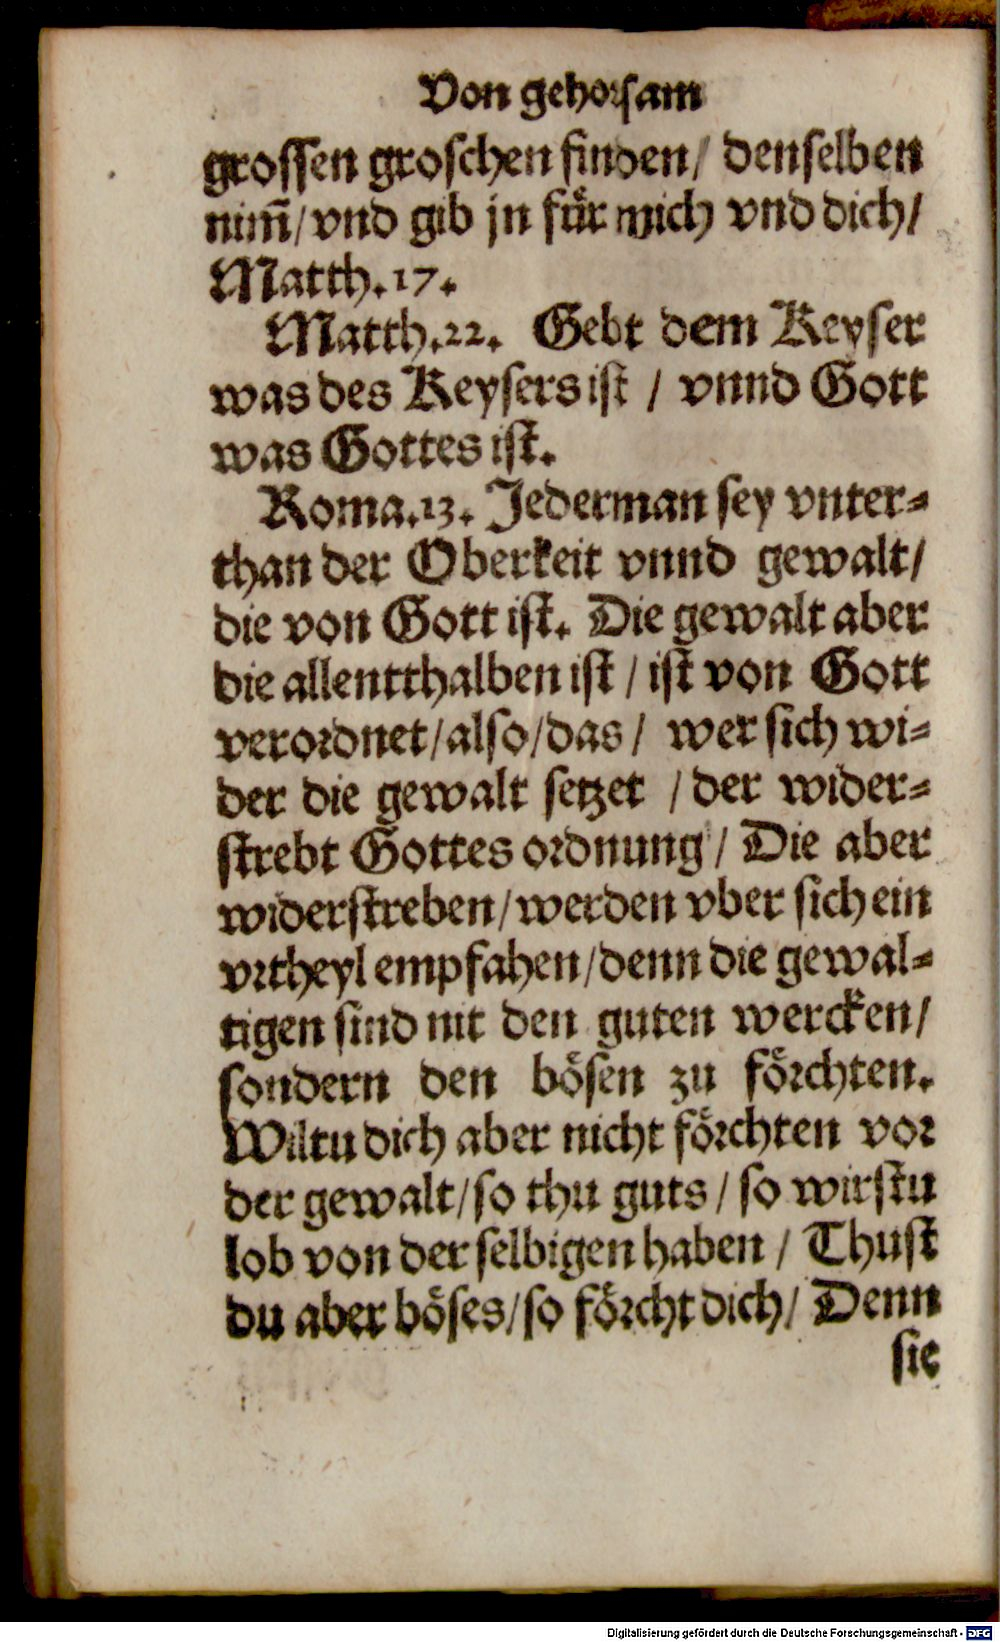 Von gehorsam
grossen groschen finden/ denselben
nim̃/ vnd gib jn für mich vnd dich/
Matth.17.
Matth.22. Gebt dem Keyser
was des Keysers ist / vnnd Gott
was Gottes ist.
Roma.13. Jederman sey vnter=
than der Oberkeit vnnd gewalt/
die von Gott ist. Die gewalt aber
die allentthalben ist / ist von Gott
verordnet/also/das/ wer sich wi=
der die gewalt setzet / der wider=
strebt Gottes ordnung / Die aber
widerstreben/werden vber sich ein
vrtheyl empfahen/denn die gewal=
tigen sind nit den guten wercken/
sondern den bösen zu förchten.
Wiltu dich aber nicht förchten vor
der gewalt/so thu guts/ so wirstu
lob von der selbigen haben / Thust
du aber böses/so förcht dich/ Denn
sie
Digitalisierung gefördert durch die Deutsche Forschungsgemeinschaft - DFG